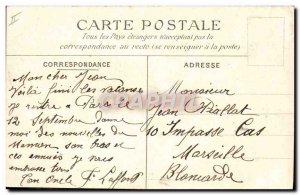 II
CARTE POSTALE
Tous les Pays étrangers n'acceptent pas la
correspondance au recto (se renseigner à la poste)
CORRESPONDANCE
ADRESSE
Mon cher Jean
Voilà fini les
je rentre à Paris
12 Septembre donne
moi des nouvelles de
Maman son bras et
ces ennuis je vais
Ton Oncle
Monsieur
Jean
10 Impasse Cas
Marseille
Blancarde